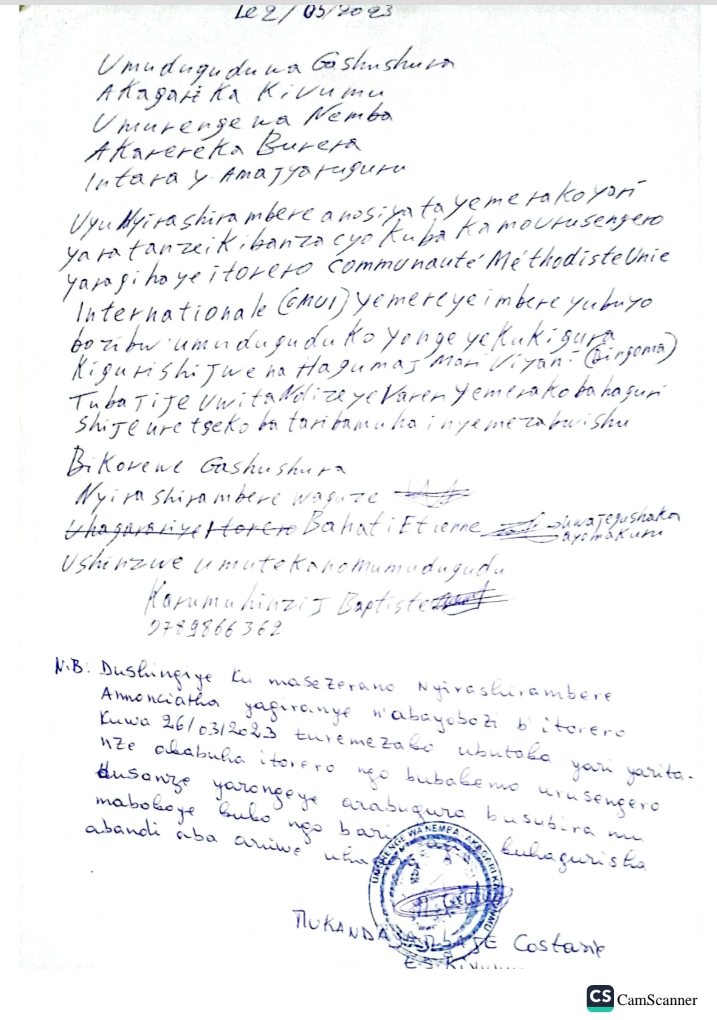 Le 2/05/2023
Umudugudu wa Gashushura
Akagari Ka Kivumu
Umurenge wa Nemba
AKarereka Burera
Intara y. Amajyaruguru
Uyu Nyirashirambere anosiyata yemerako yari
yaratanze iKibanza cyo Kuba Kamo urusengero
yaragihaye itorero Communauté Méthodiste Unie
Internationale (CMUI) yemereye imbere yubuyo
bozibw'umudugudu Ko yongeye Kukigura
Kigurishijwe na Hagumaj Mari Viyani (Birgoma)
Tubajije uwita Ndizeye Varen yemerako bahaguri
shije uretseko bataribamuha inyemezabwishu
BiKorewe Gashushura
Nyirashirambere waguze
Uhagarariye Itorero Bahati Etienne uwajegushaka
ayomakuru
Ushinzwe umutekano mumudugudu
Karumuhinzi J Baptiste
0789866362
N.B: Dushingiye ku masezerano Nyirashirambere
Annonciatha yagiranye n'abayobozi b'itorero
kuwa 26/03/2023 turemezako ubutaka yari yarita-
nze akabuha itorero ngo bubakemo urusengero
dusanze yarongeye arabugura busubira mu
maboko ye kuko ngo bari buhagurisha
abandi aba ariwe
UMURENGE WA NEMBA - AKAGARI KA KIVUMU
MUKANDA Costasie
E.S. Kivumu
CS CamScanner